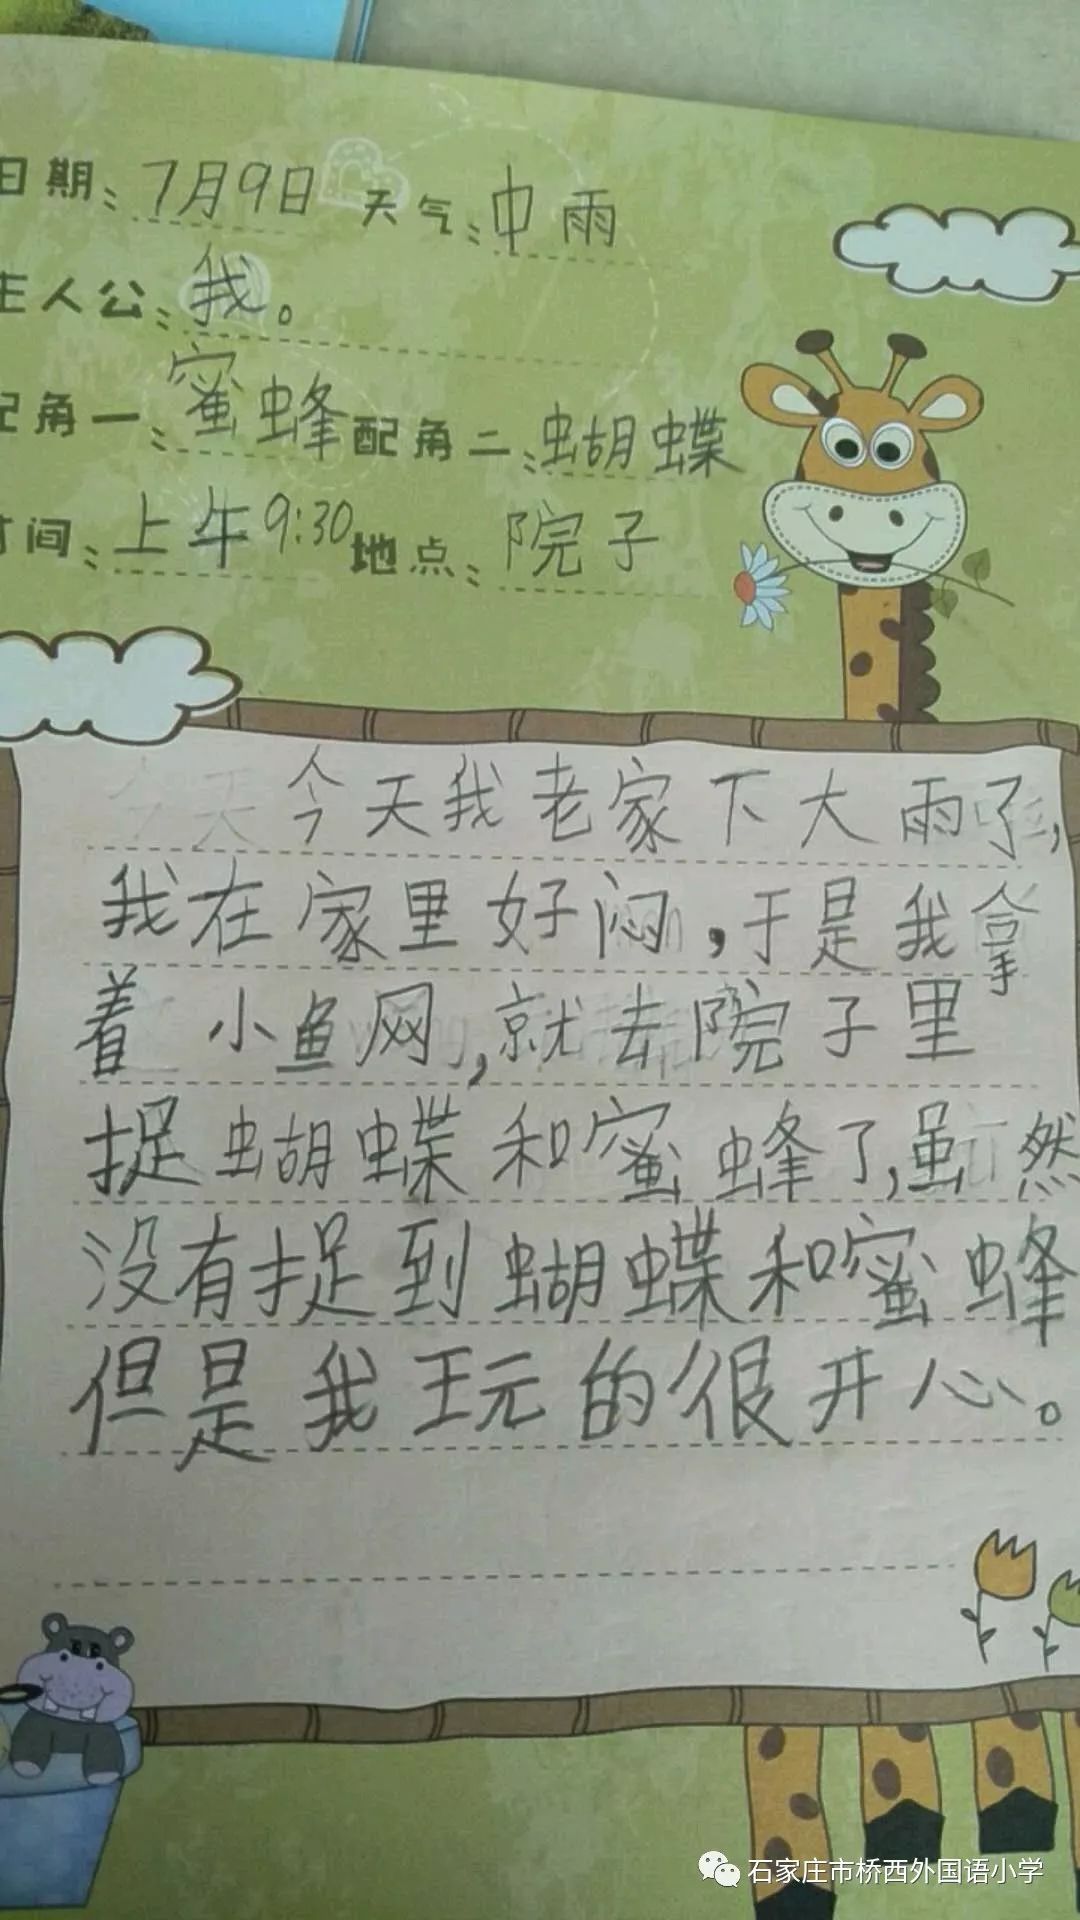 日期：7月9日 天气：中雨
主人公：我。
配角一：蜜蜂 配角二：蝴蝶
时间：上午9:30 地点：院子
今天我老家下大雨了,
我在家里好闷,于是我拿
着小鱼网,就去院子里
捉蝴蝶和蜜蜂了,虽然
没有捉到蝴蝶和蜜蜂
但是我玩的很开心。
石家庄市桥西外国语小学